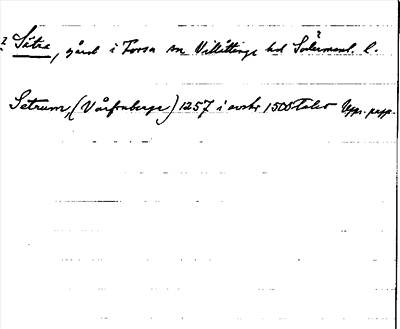 ? Sätra, gård i Torsa sn Villåttinge hd Södermanl. l.
Setrum, (Vårfruberga) 1257 i avskr. 1500talet Upps. papp.